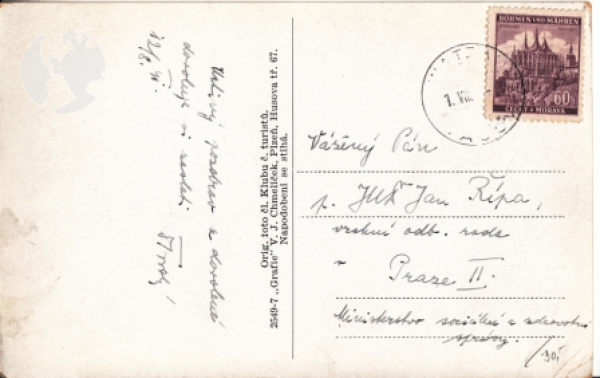 Uctivý pozdrav z dovolené
dovoluje si zaslati
12/8. 41.
Orig. foto čl. Klubu č. turistů.
2549-7 „Grafie" V. J. Chmelíček, Plzeň, Husova tř. 67.
Napodobení se stihá.
BÖHMEN UND MÄHREN
60h
ČECHY A MORAVA
7. VIII
Vážený Pán
p. JUDr Jan Řípa,
vrchní odb. rada
v Praze II.
Ministerstvo sociální a zdravotní
správy.